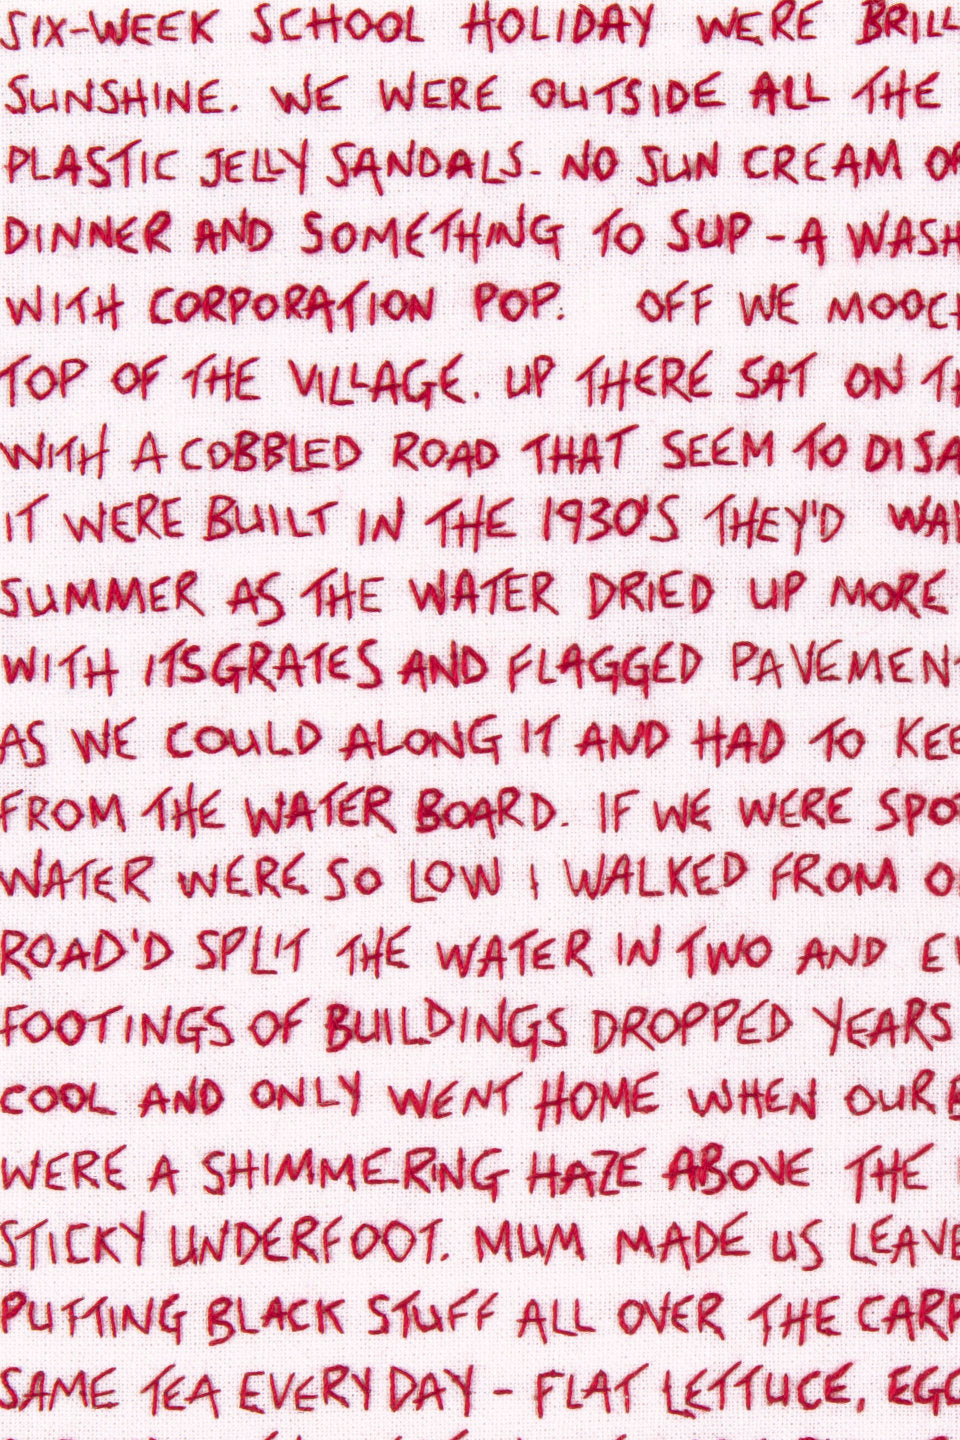 SIX-WEEK SCHOOL HOLIDAY WERE BRILL
SUNSHINE. WE WERE OUTSIDE ALL THE
PLASTIC JELLY SANDALS. NO SUN CREAM OR
DINNER AND SOMETHING TO SUP - A WASH
WITH CORPORATION POP. OFF WE MOOCH
TOP OF THE VILLAGE. UP THERE SAT ON TH
WITH A COBBLED ROAD THAT SEEM TO DISA
IT WERE BUILT IN THE 1930'S THEY'D WAL
SUMMER AS THE WATER DRIED UP MORE
WITH ITS GRATES AND FLAGGED PAVEMENT
AS WE COULD ALONG IT AND HAD TO KEE
FROM THE WATER BOARD. IF WE WERE SPO
WATER WERE SO LOW I WALKED FROM O
ROAD'D SPLIT THE WATER IN TWO AND EV
FOOTINGS OF BUILDINGS DROPPED YEARS
COOL AND ONLY WENT HOME WHEN OUR B
WERE A SHIMMERING HAZE ABOVE THE
STICKY UNDERFOOT. MUM MADE US LEAVE
PUTTING BLACK STUFF ALL OVER THE CARP
SAME TEA EVERY DAY - FLAT LETTUCE, EGG